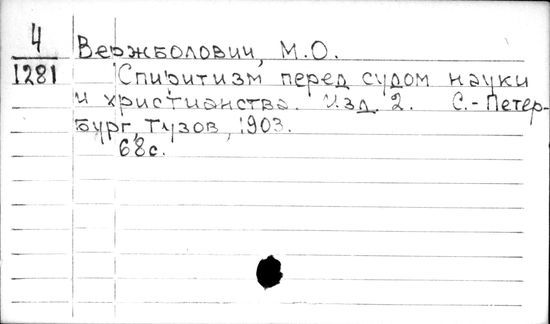 4
1281
Вержболович, М.О.
Спиритизм перед судом науки
и христианства. Изд. 2. С.-Петер-
бург, Тузов, 1903.
68с.